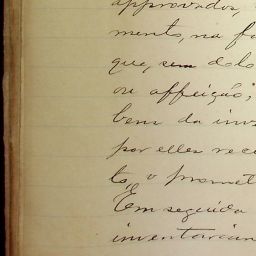 approvados,
mento, na fo
que, sem dolo
ou affeição;
bens da inv
por elles rece
to, o promet
Em seguida
inventarian